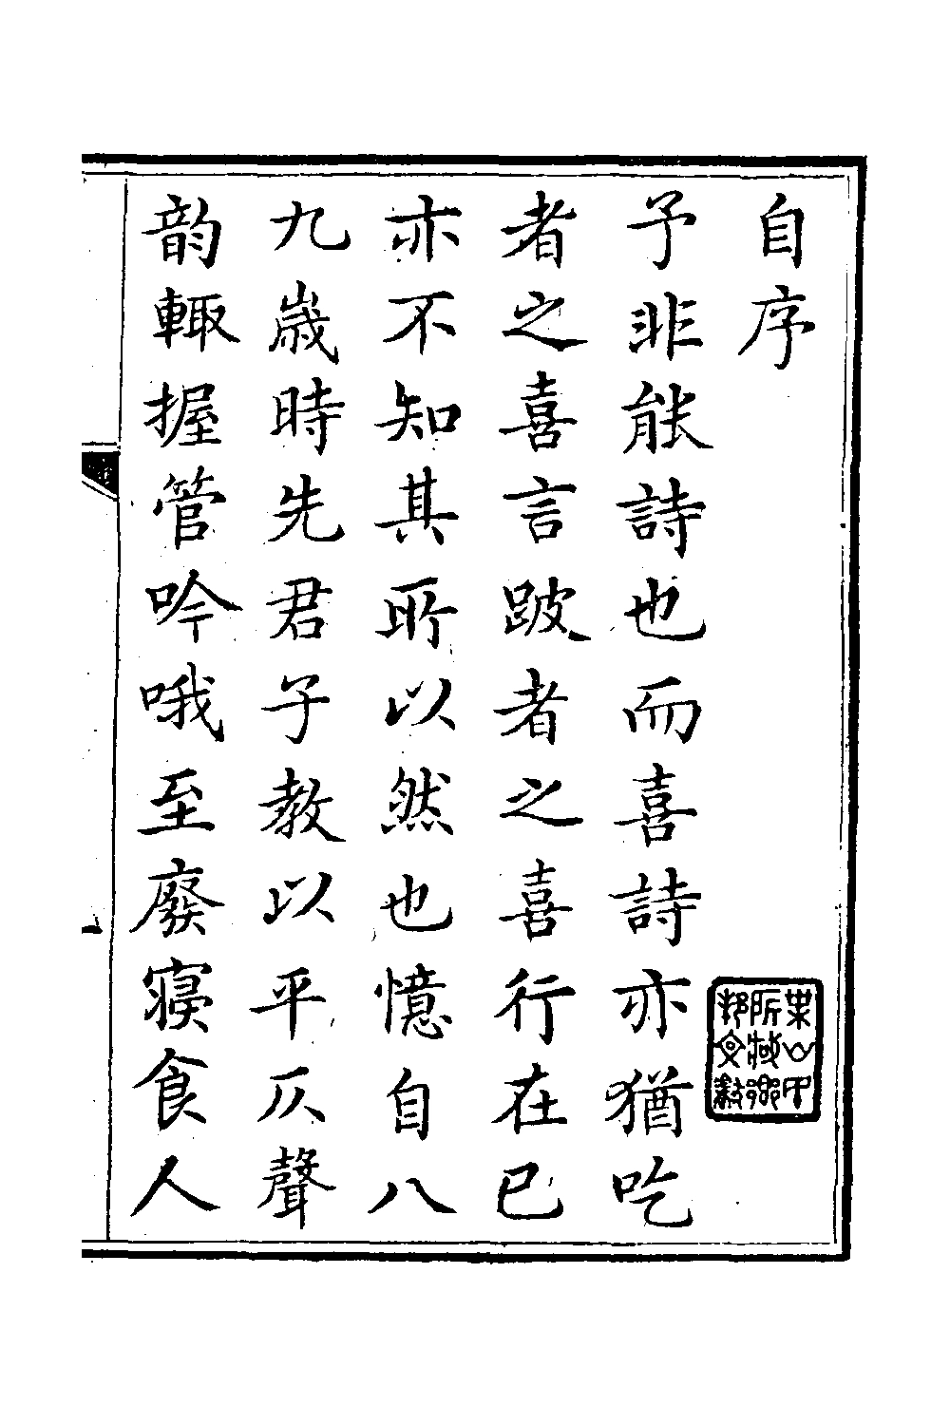 自序
予非能詩也而喜詩亦猶吃
者之喜言跛者之喜行在已
亦不知其所以然也憶自八
九歲時先君子教以平仄聲
韵輙握管吟哦至廢寢食人